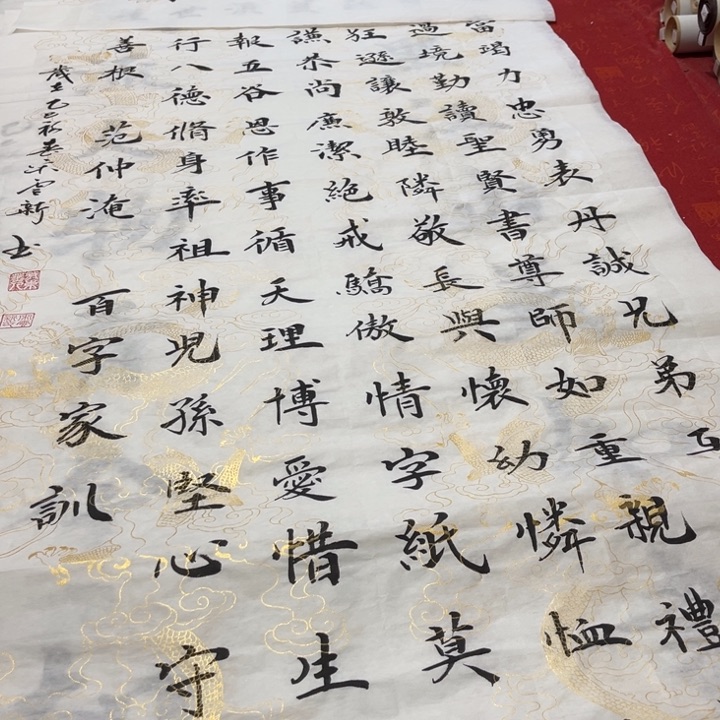 當竭力忠勇表丹誠兄弟互
過境勤讀聖賢書尊師如重親禮
狂遜讓敦睦隣敬長與懷幼憐恤
謙恭尚廉潔絕戒驕傲情字紙莫
報五谷恩作事循天理博愛惜生
行八德脩身率祖神児孫堅心守
善根 范仲淹 百字家訓
歲在乙巳 书